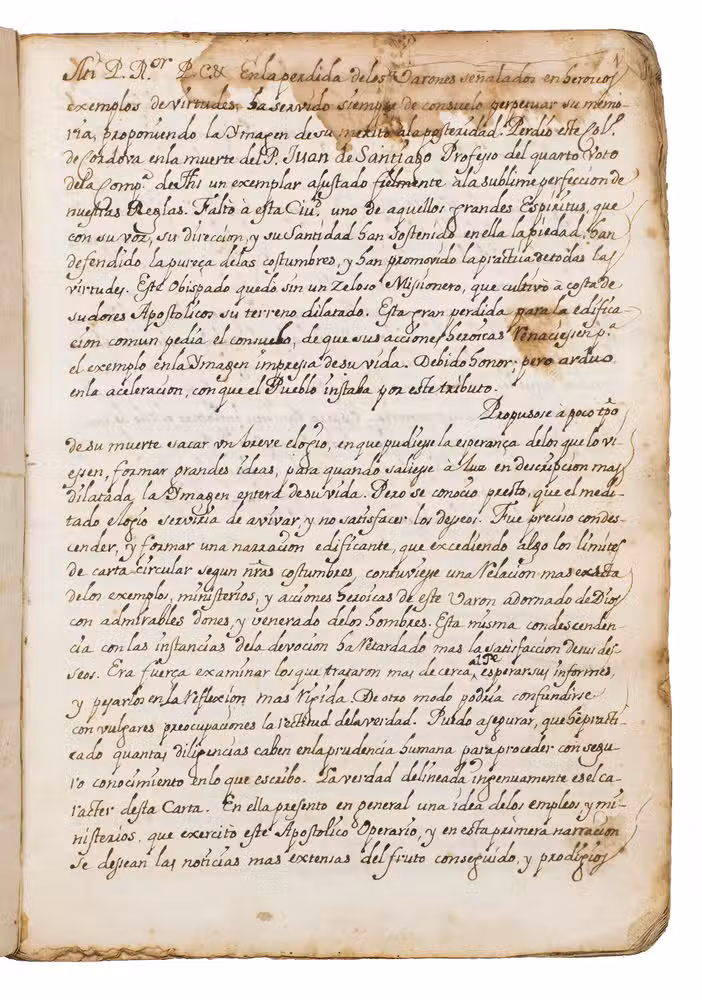 Mi P. R.or P. C. &. En la perdida de los Varones señalados en heroicos
exemplos de virtudes, ha servido siempre de consuelo perpetuar su memo-
ria, proponiendo la Ymagen de su merito ala posteridad. Perdio este Col.º
de Cordova en la muerte del P. Juan de Santiago Professo del quarto Voto
dela Comp.ª de Jhs un exemplar ajustado fielmente àla sublime perfeccion de
nuestras Reglas. Faltò à esta Ciu.d uno de aquellos grandes Espiritus, que
con su voz, su direccion, y su Santidad han sostenido en ella la piedad, han
defendido la pureça delas costumbres, y han promovido la practica de todas las
virtudes. Este Obispado quedò sin un Zeloso Missionero, que cultivò à costa de
sudores Apostolicos su terreno dilatado. Esta gran perdida para la edifica-
cion comun pedia el consuelo, de que sus acciones heroicas renaciessen p.ª
el exemplo en la Ymagen impressa de su vida. Debido honor; pero arduo
en la aceleracion, con que el Pueblo instaba por este tributo.
Propusose à poco tpo
de su muerte sacar un breve elogio, en que pudiesse la esperança delos que lo vi-
essen, formar grandes ideas, para quando saliesse à luz en descripcion mas
dilatada, la Ymagen entera de su vida. Pero se conocio presto, que el medi-
tado elogio serviria de avivar, y no satisfacer los deseos. Fue preciso condes-
cender, y formar una narracion edificante, que excediendo algo los limites
de carta circular segun nrãs costumbres, contuviesse una relacion mas exacta
delos exemplos, ministerios, y acciones heroicas de este Varon adornado de Dios
con admirables dones, y venerado delos hombres. Esta misma condescenden-
cia con las instancias dela devocion ha retardado mas la satisfaccion de sus des-
seos. Era fuerça examinar los que trataron mas de cerca al P.e esperar sus informes,
y pesarlos en la reflexion mas rigida. De otro modo podria confundirse
con vulgares preocupaciones la rectitud dela verdad. Puedo asegurar, que hè practi-
cado quantas diligencias caben en la prudencia humana para proceder con segu-
ro conocimiento en lo que escribo. La verdad delineada ingenuamente es el ca-
racter desta Carta. En ella presento en general una idea delos empleos y mi-
nisterios, que exercitò este Apostolico Operario, y en esta primera narracion
se dessean las noticias mas extensas del fruto conseguido, y prodigios